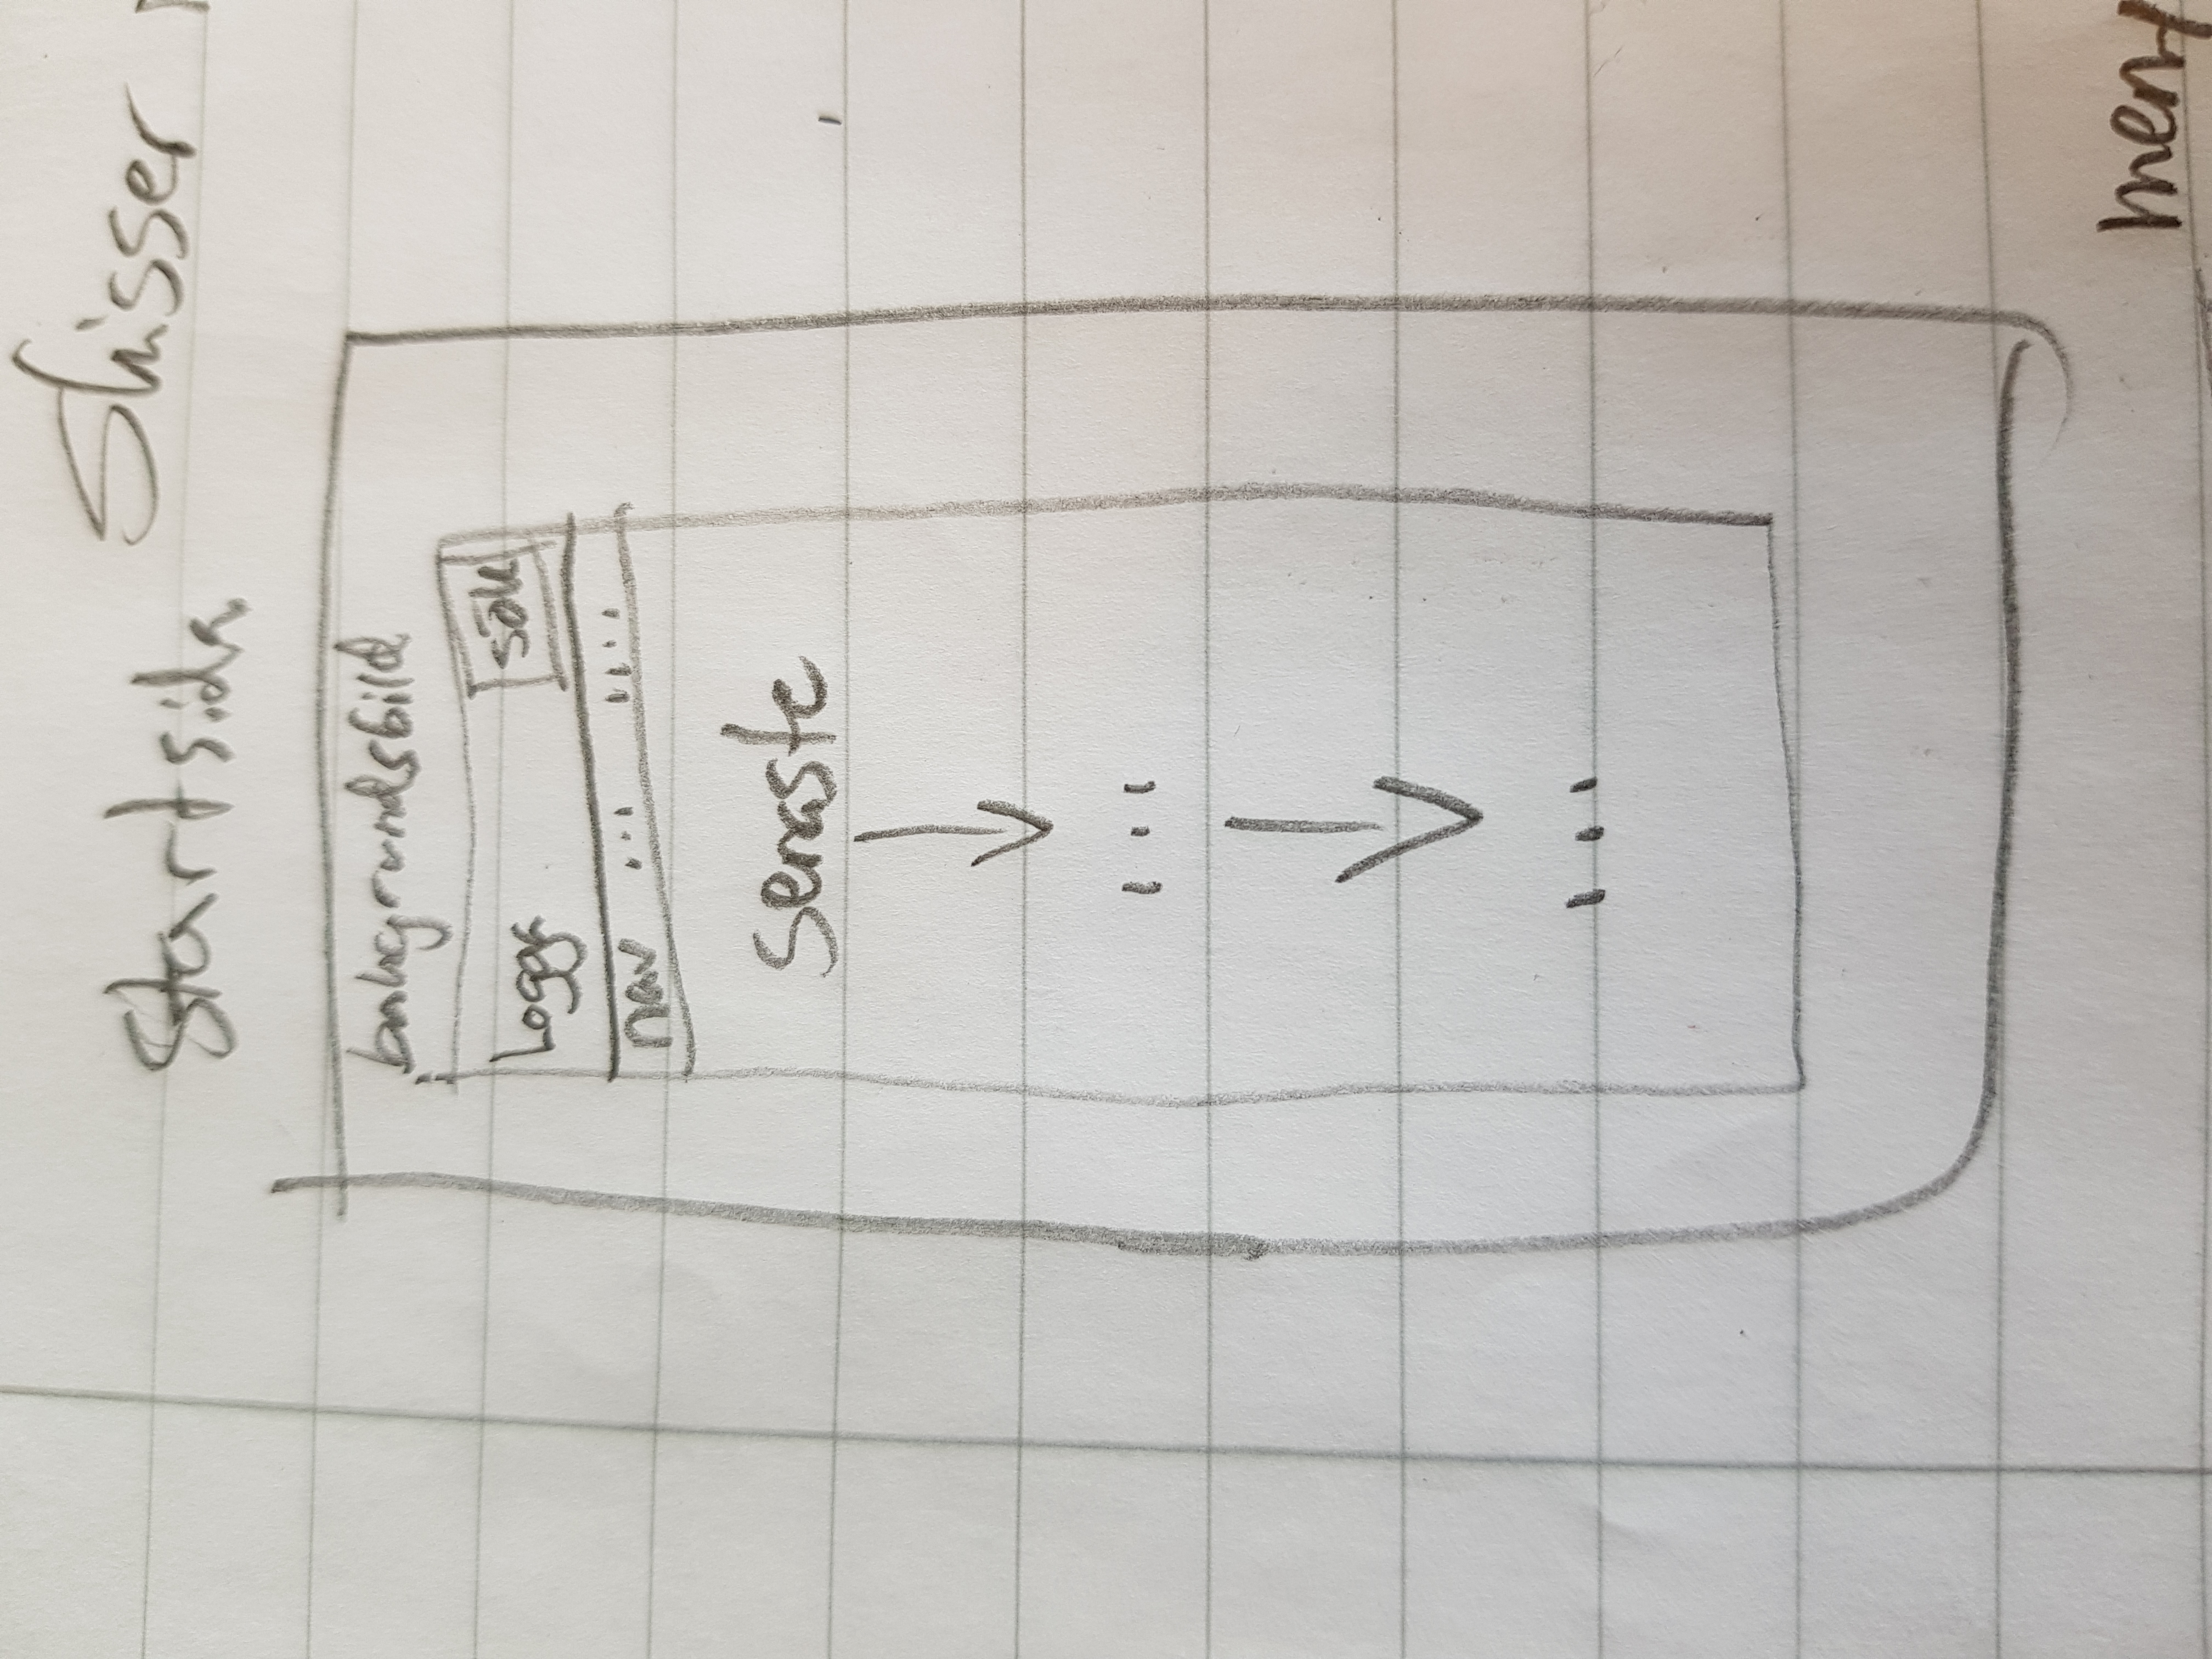 Skisser
Startsida
bakgrundsbild
Logga sök
nav ... ....
Senaste
...
...
meny